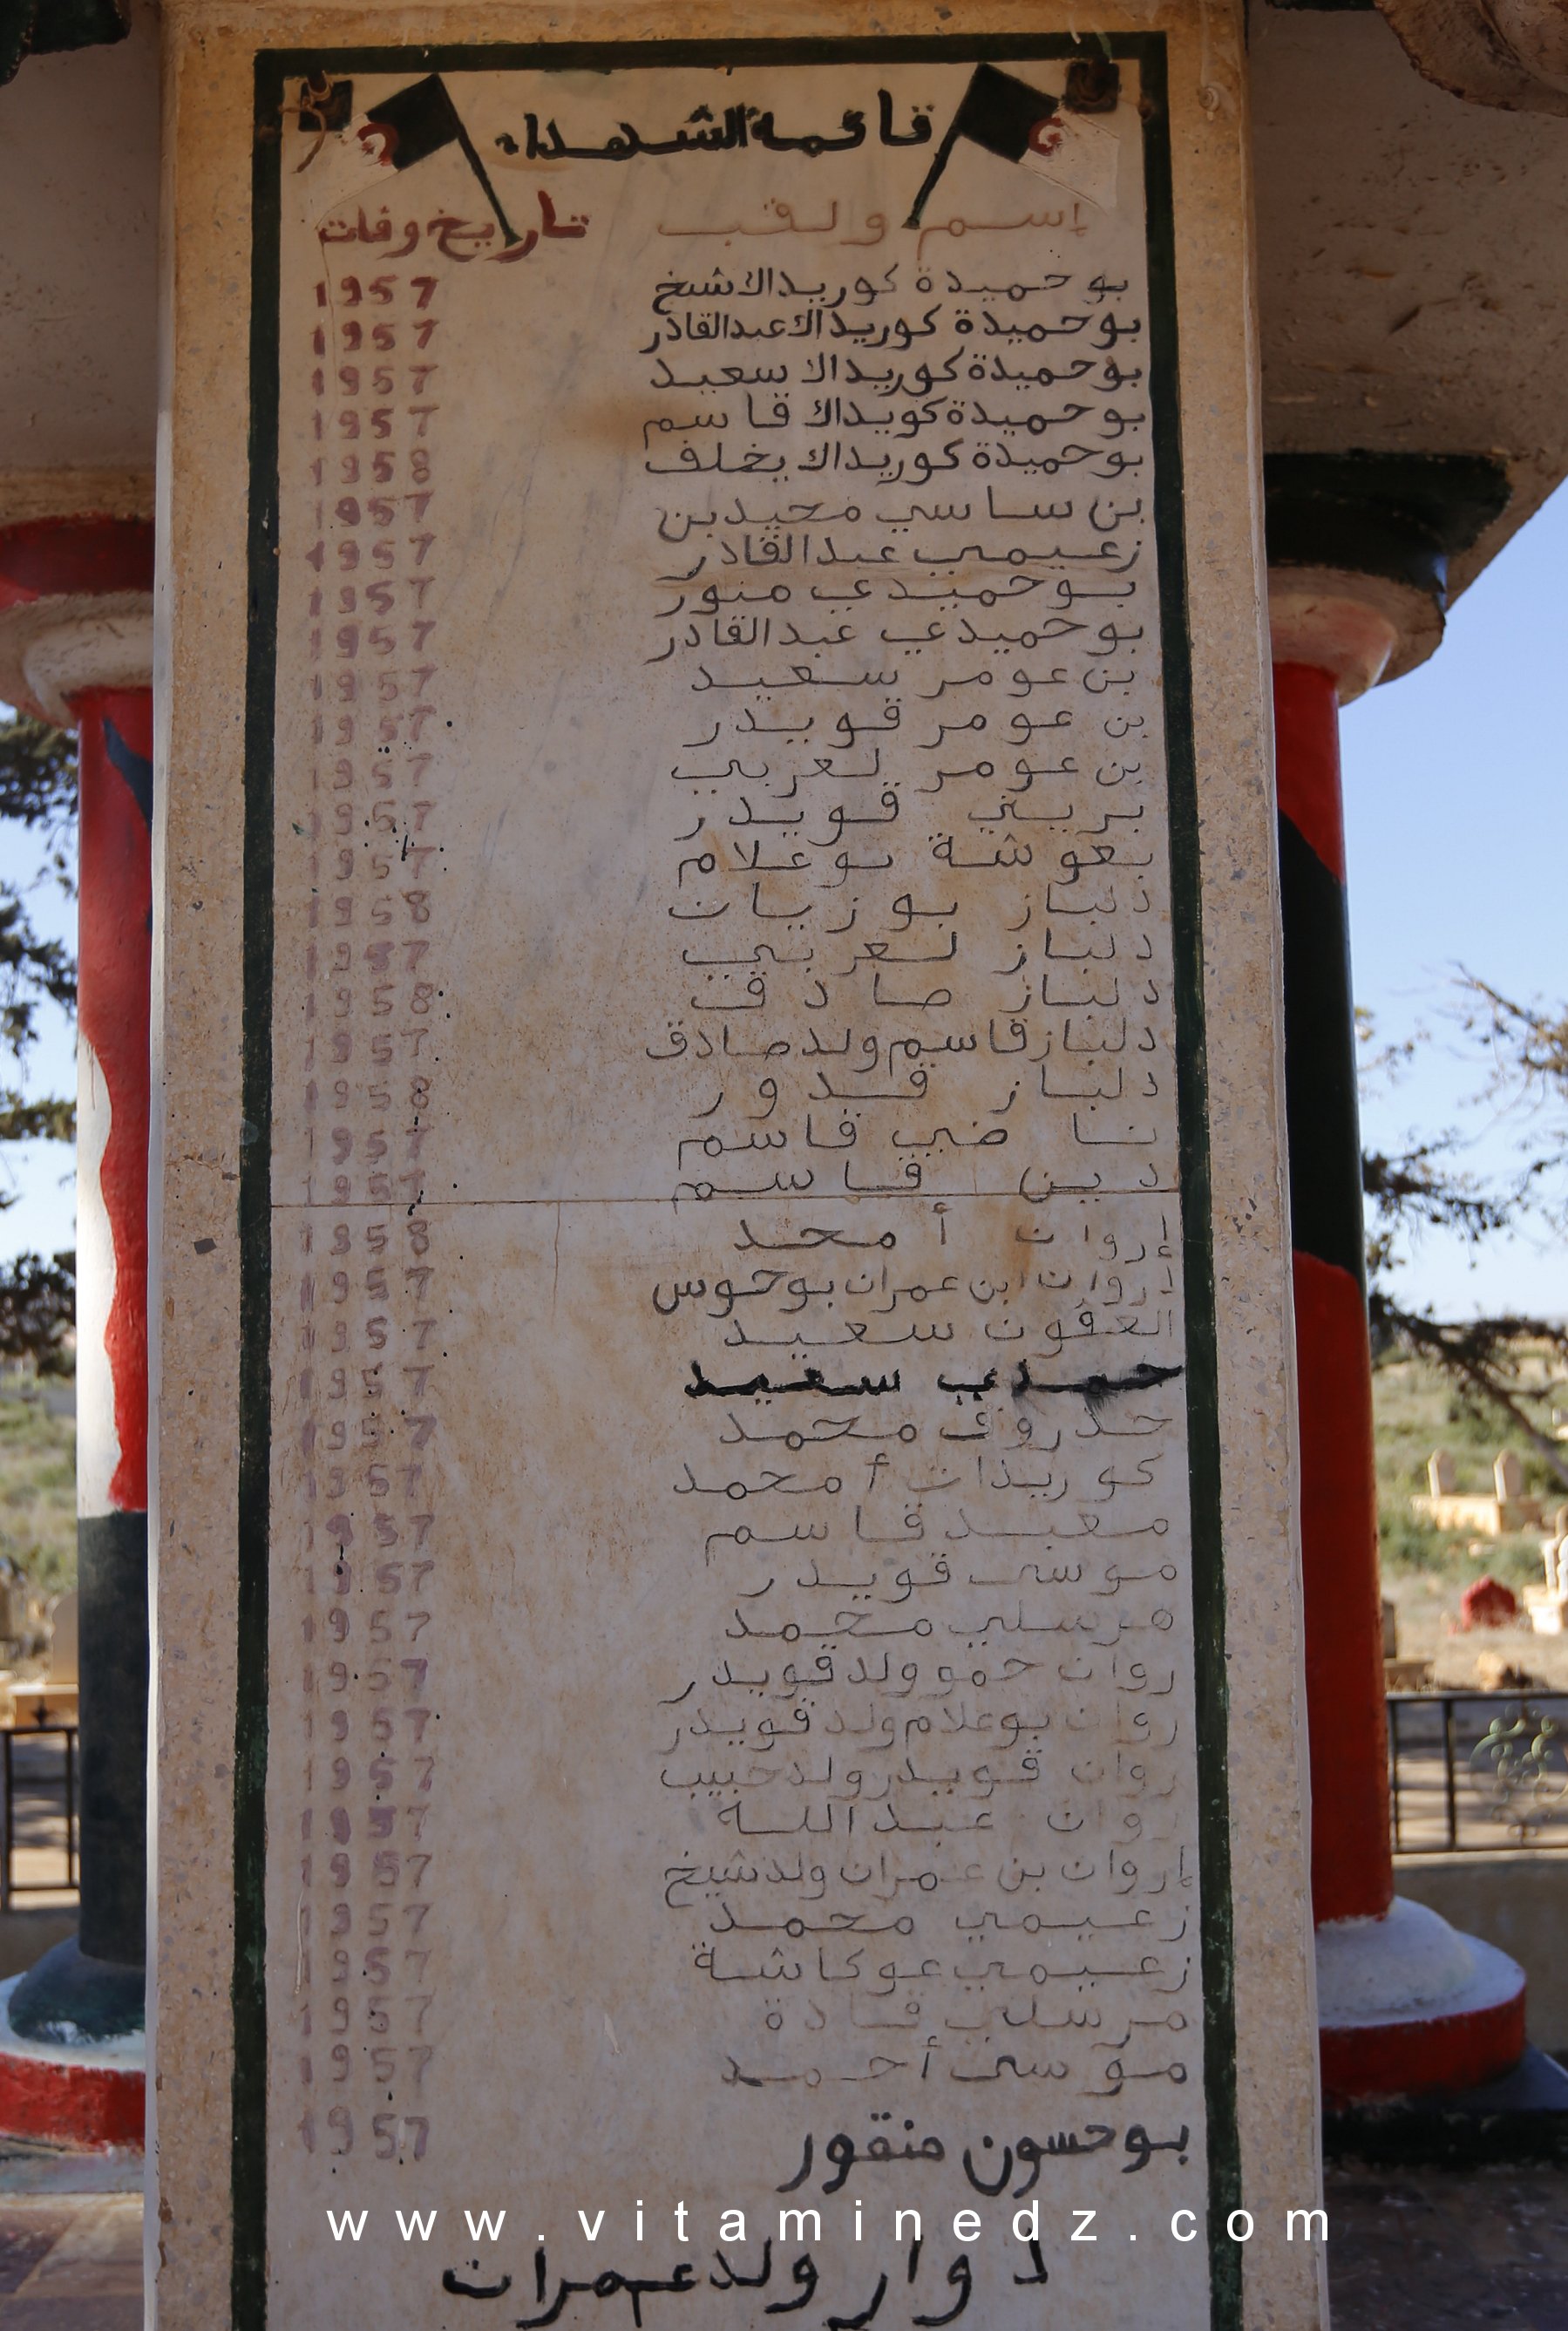 قائمة الشهداء
إسم ولقب تاريخ وفات
بوحميدة كوريداك شيخ 1957
بوحميدة كوريداك عبدالقادر 1957
بوحميدة كوريداك سعيد 1957
بوحميدة كويداك قاسم 1957
بوحميدة كوريداك يخلف 1958
بن ساسي محمد بن 1957
زعيمي عبدالقادر 1957
بوحميدي منور 1957
بوحميدي عبدالقادر 1957
بن عومر سعيد 1957
بن عومر قويدر 1957
بن عومر لعربي 1957
بريني قويدر 1957
بعوشة بوعلام 1957
دلباز بوزيان 1958
دلباز لعربي 1957
دلباز صادق 1958
دلباز قاسم ولد صادق 1957
دلباز قدور 1958
قاسم 1957
دين قاسم 1957
إروان أمحمد 1958
إروان ابن عمران بوحوس 1957
العقون سعيد 1957
حمدي سعيد 1957
حذروق محمد 1957
كوريدات أمحمد 1957
معبد قاسم 1957
موسى قويدر 1957
مرسلي محمد 1957
روان حمو ولد قويدر 1957
روان بوعلام ولد قويدر 1957
روان قويدر ولد حبيب 1957
روان عبد الله 1957
إروان بن عمران ولد شيخ 1957
زعيمي محمد 1957
زعيمي عوكاشة 1957
مرسلي قادة 1957
موسى أحمد 1957
بوحسون منقور 1957
www.vitaminedz.com
دوار ولد عمران